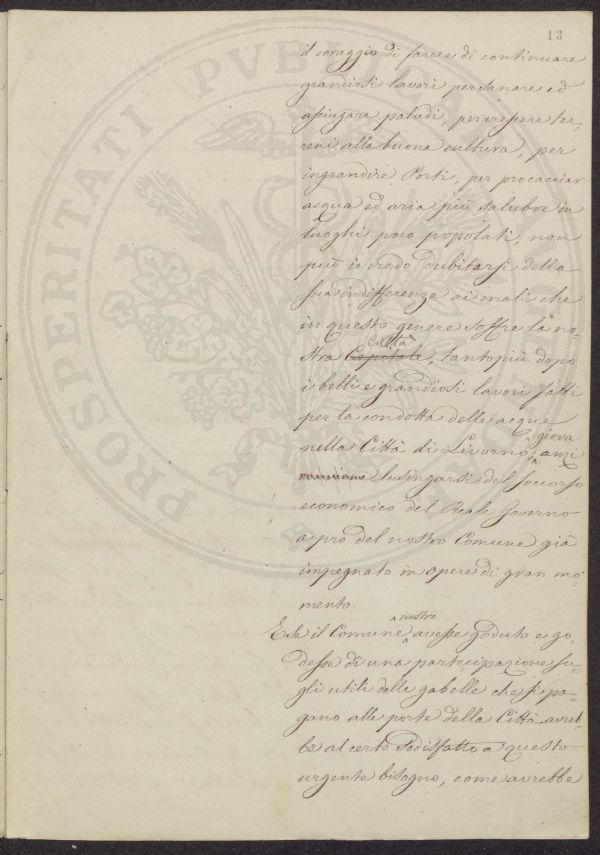 13
il coraggio di fare e di continuare
grandiosi lavori per sanare ed
asciugare paludi, per crescere ter=
reni alla buona cultura, per
ingrandire Porti, per procacciar
acqua ed aria più salubre in
luoghi poco popolati, non
può io credo dubitarsi della
sua indifferenza ai mali che
in questo genere soffre la no=
Città
stra Capitale, tantopiù dopo
i belli e grandiosi lavori fatti
per la condotta delle acque
nella Città di Livorno, giova anzi
lusingarsi del soccorso
economico del Reale Governo
a pro del nostro Comune già
impegnato in opere di gran mo=
mento.
E se il Comune nostro avesse goduto e go=
desse di una partecipazione su=
gli utili delle gabelle che si pa=
gano alle porte della Città avreb=
be al certo sodisfatto a questo
urgente bisogno, come avrebbe
PROSPERITATI PVBLICAE